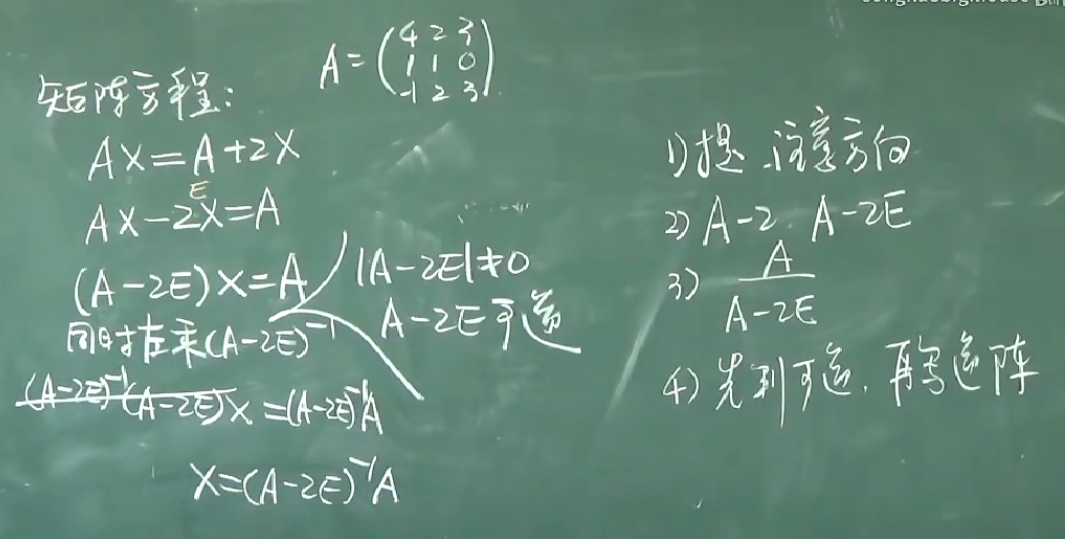 矩阵方程:
A = (4 2 3
1 1 0
-1 2 3)
AX=A+2X
AX-2X=A
E
(A-2E)X=A
|A-2E|≠0
A-2E可逆
同时左乘(A-2E)⁻¹
(A-2E)⁻¹(A-2E)X=(A-2E)⁻¹A
X=(A-2E)⁻¹A
1)提.注意方向
2) A-2 A-2E
3) A
A-2E
4) 先判可逆.再写逆阵